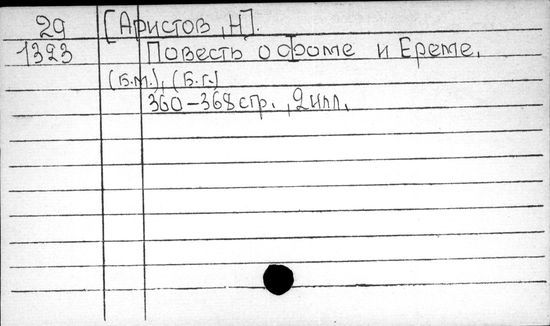 29 [Аристов, Н].
1393 Повесть о Фоме и Ереме.
(Б.м.), (Б.г.)
360-368 стр., 2 илл.